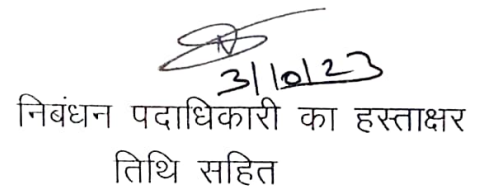 3/10/23
निबंधन पदाधिकारी का हस्ताक्षर
तिथि सहित